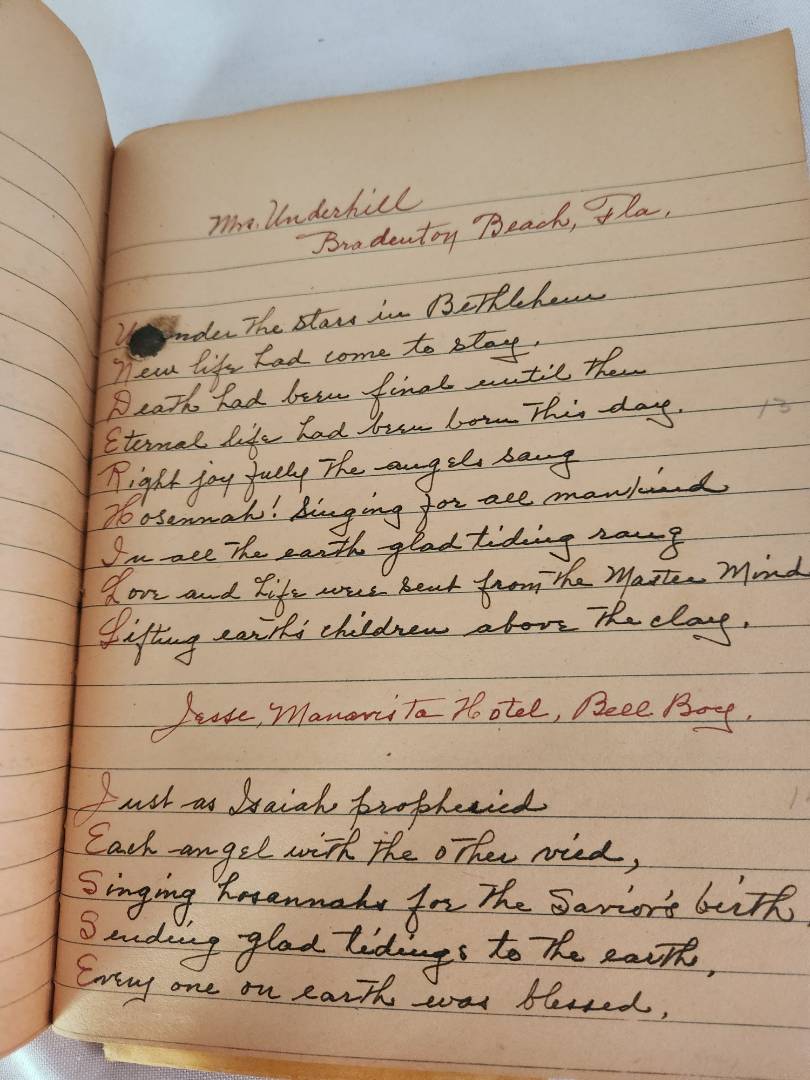 Mrs. Underhill
Bradenton Beach, Fla.
Under the stars in Bethlehem
New life had come to stay.
Death had been final until then
Eternal life had been born this day.
Right joyfully the angels sang
Hosennah! Singing for all mankind
In all the earth glad tiding rang
Love and Life were sent from the Master Mind
Lifting earth's children above the clay.
Jesse, Manavista Hotel, Bell Boy.
Just as Isaiah prophesied
Each angel with the other vied,
Singing hosannahs for the Savior's birth,
Sending glad tidings to the earth,
Every one on earth was blessed.
13